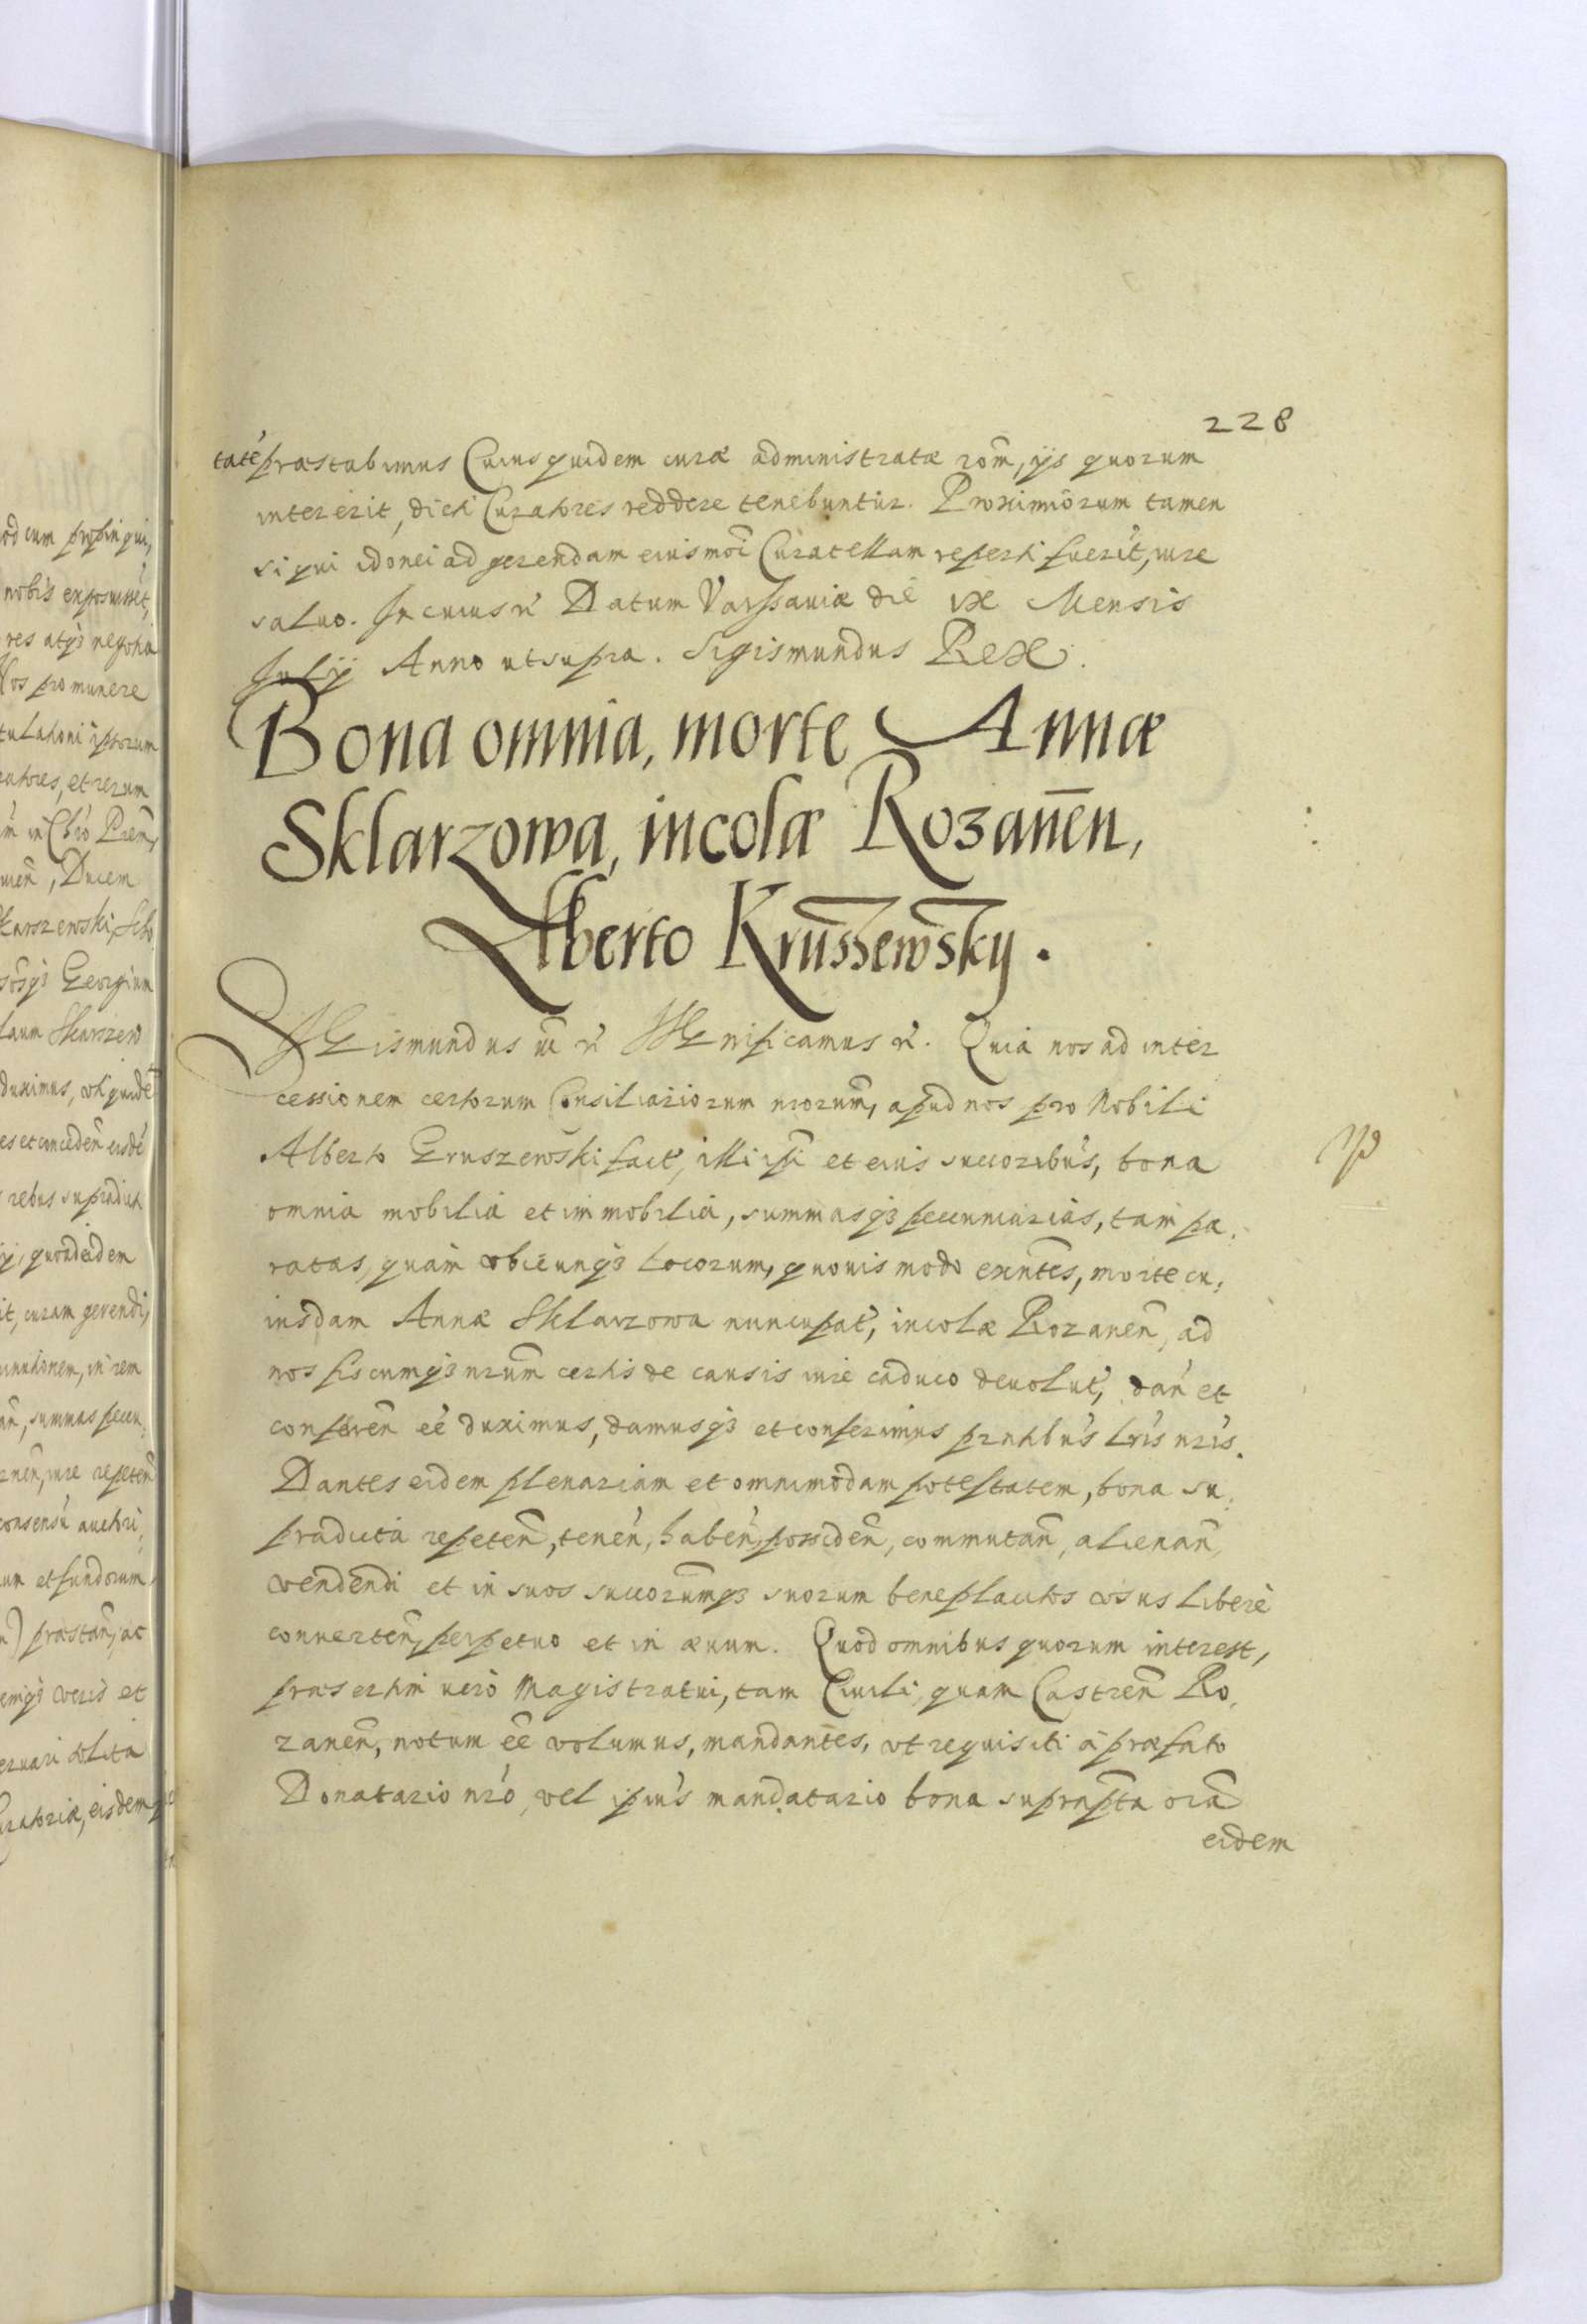 228
tatē præstabimus Cuius quidem curæ administratæ rōm, ijs quorum
intererit, dicti Curatores reddere tenebuntur. Proximiorum tamen
si qui idonei ad gerendam eiusmōi Curatellam reperti fuerīt, iure
saluo. In cuius rē Datum Varssauiæ die IX Mensis
Julij Anno ut supra. Sigismundus Rex.
Bona omnia, morte Annæ
Sklarzowa, incolæ Rozanēn,
Alberto Krusszewsky.
SIGismundus iii rē SIGnificamus rē. Quia nos ad inter
cessionem certorum Consiliariorum nrorum, apud nos pro Nobili
Alberto Gruszewski fact, illi ipsi et eius succoribus, bona
omnia mobilia et immobilia, summasq3 pecuniarias, tam pa,
ratas, quam vbicunq3 locorum, quouis modo exntēs, morte cu,
iusdam Annæ Sklarzowa nuncupat, incolæ Rozanen, ad
nos fiscumq3 nrum certis de causis iure caduco deuolut, dan et
conferen ēe duximus, damusq3 et conferimus prntibus lris nris.
Dantes eidem plenariam et omnimodam potestatem, bona su,
pradicta repeten, tenen, haben, possiden, commutan, alienan,
vendendi et in suos succorumq3 suorum beneplacitos vsus liberè
conuerten, perpetuo et in æuum. Quod omnibus quorum interest,
præsertim uero Magistratui, tam Ciuili, quam Castren Ro,
zanen, notum ēe volumus, mandantes, vt requisiti à præfato
Donatario nrō, vel ipius mandatario bona suprapta oia
eidem
od cum propinqui,
nobis exposuisset,
res atq3 negotia
Nos pro munere
tutores, et rerum
Ducem
Karszewski,
Georgium
duximus, vti quidē
rebus supradict
quondeidem
it, curam gerendi,
in rem
an, summas pecu,
iure repeten
consensu
um et fundorum,
præstan, ac
et
eisdem